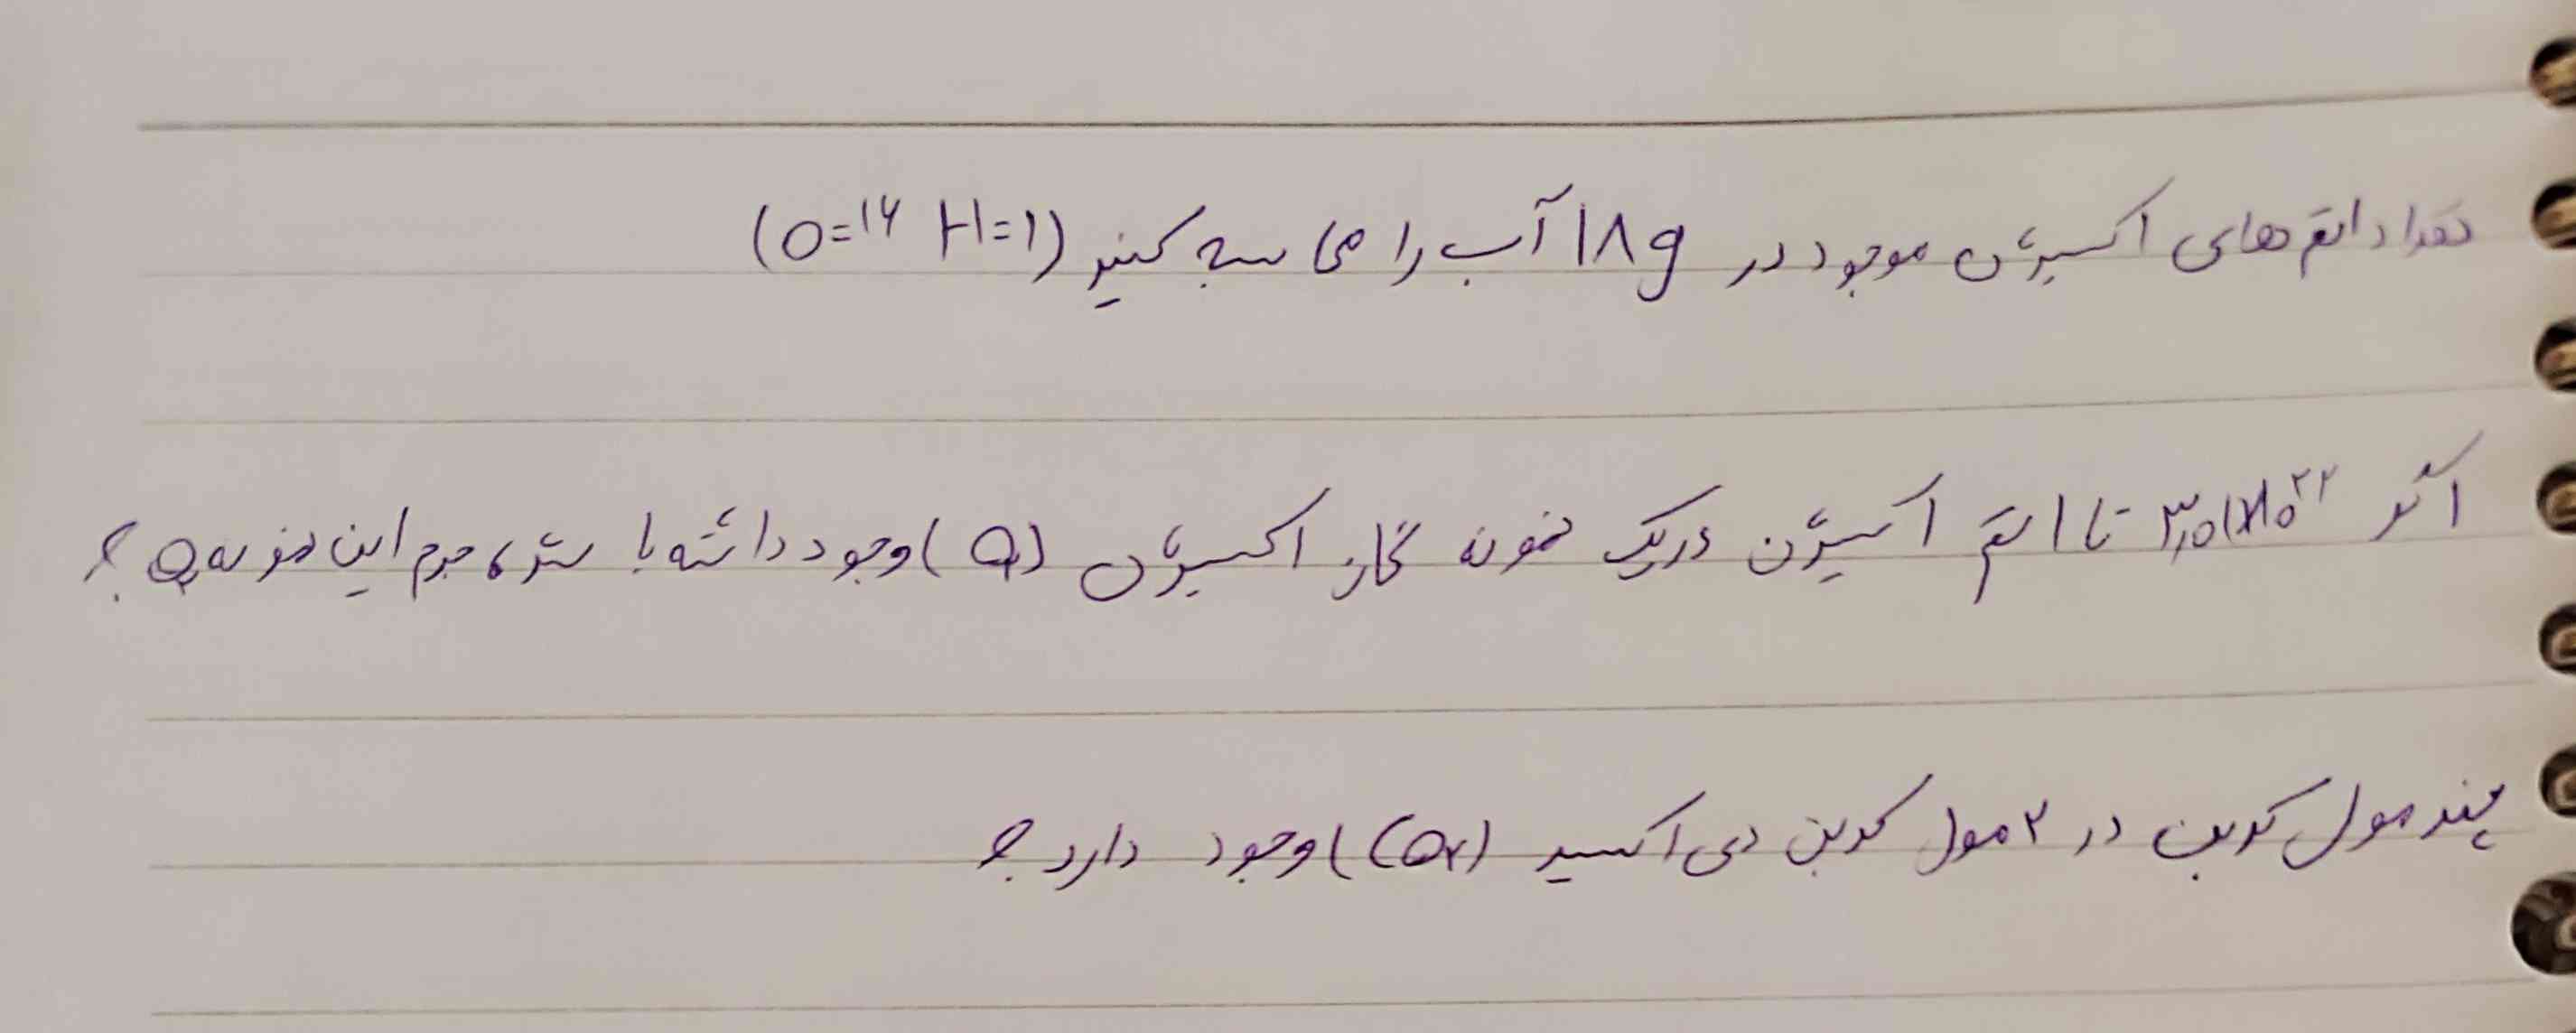 تعداد اتم های اکسیژن موجود در ۱۸g آب را محاسبه کنید (O=۱۶ H=۱)
اگر ۳٫۰۱×۱۰^۲۲ تا اتم اکسیژن در یک نمونه گاز اکسیژن (O₂) وجود داشته باشد، جرم این نمونه O₂ ؟
چند مول کربن در ۲ مول کربن دی اکسید (CO₂) وجود دارد ؟